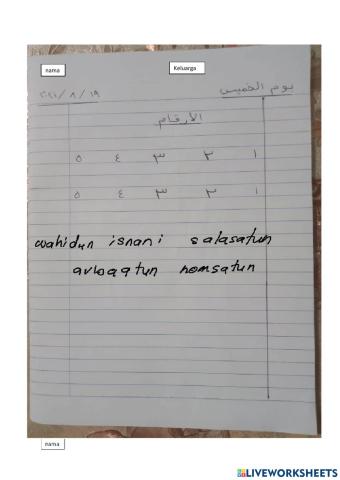 nama
Keluarga
يوم الخميس ٢٠٢١/٨/١٩
الأرقام
١ ٢ ٣ ٤ ٥
١ ٢ ٣ ٤ ٥
wahidun isnani salasatun
arbaqatun homsatun
nama
LIVEWORKSHEETS